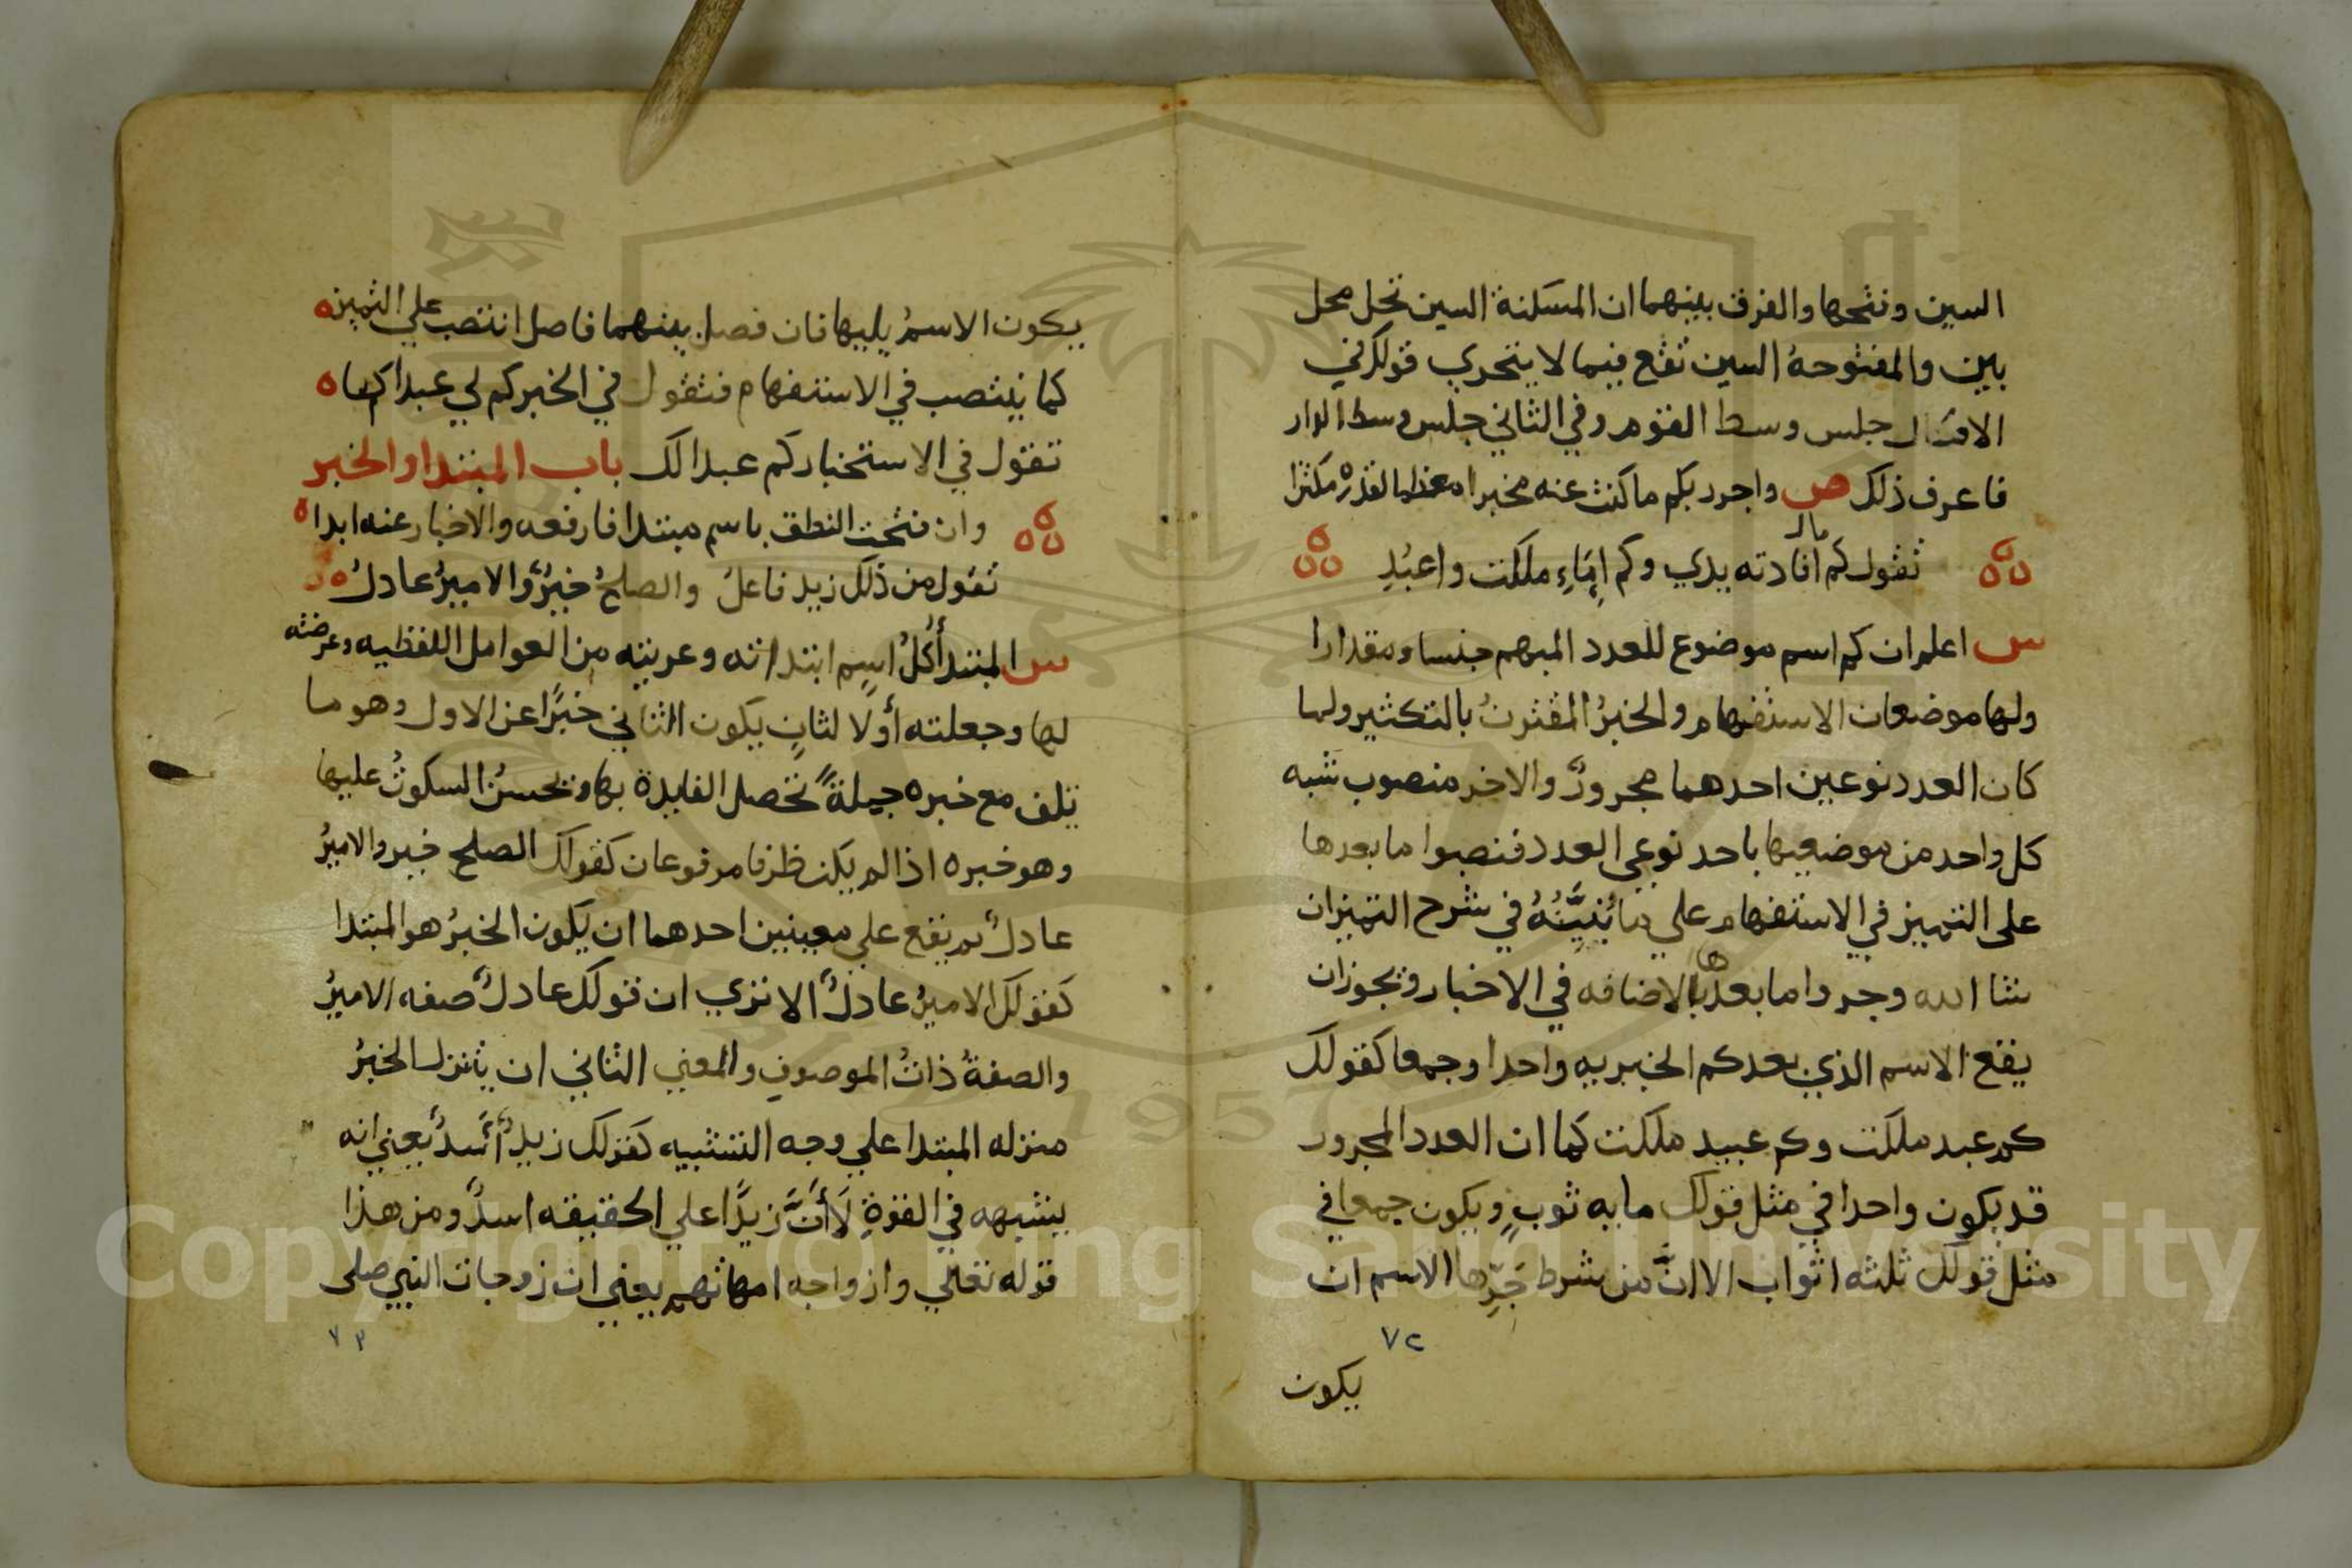 السين وفتحها والفرق بينهما ان المسكنة السين تحل محل
بين والمفتوحة السين تقع فيما لا يتجزي قولك في
الاول جلس وسط القوم وفي الثاني جلس وسط الدار
فاعرف ذلك ص واجرر بكم ما كنت عنه مخبرا معظما لقدره مكثرا
تقول كم مال افادته يدي وكم إماءٍ ملكت واعبُدِ
س اعلم ان كم اسم موضوع للعدد المبهم جنسا ومقدارا
ولها موضعان الاستفهام والخبرُ المقترنُ بالتكثير ولما
كان العدد نوعين احدهما مجرورٌ والاخر منصوب شبه
كل واحد من موضعيها باحد نوعي العدد فنصبوا ما بعدها
على التمييز في الاستفهام علي ما نُبَيِّنُهُ في شرح التمييز ان
شا الله وجروا ما بعدها بالاضافه في الاخبار ويجوز ان
يقع الاسم الذي بعد كم الخبريه واحدا وجمعا كقولك
كم عبد ملكت وكم عبيد ملكت كما ان العدد المجرور
قد يكون واحدا في مثل قولك مايه ثوبٍ ويكون جمعا في
مثل قولك ثلثه اثواب الا انَّ من شرط جَرِّها الاسم ان
٧٢
يكون
يكون الاسمُ يليها فان فصل بينهما فاصل انتصب علي التمييز
كما ينتصب في الاستفهام فتقول في الخبر كم لي عبدا كما
تقول في الاستخبار كم عبدا لك باب المبتدا والخبر
وان فتحت النطق باسم مبتدا فارفعه والاخبار عنه ابدا
تقول من ذلك زيد فاعلُ والصلحُ خيرٌ والاميرُ عادلُ
س المبتدأ كلُّ اسمٍ ابتداته وعريته من العوامل اللفظيه وعرضته
لها وجعلته أولا لثانٍ يكون الثاني خبرًا عن الاول وهو ما
تلف مع خبره جملةً تحصل الفايدة بها ويحسنُ السكوتُ عليها
وهو خبره اذا لم يكن ظرفا مرفوعان كقولك الصلح خير والاميرُ
عادلٌ ثم يقع علي معنيين احدهما ان يكون الخبرُ هو المبتدا
كقولك الاميرُ عادلٌ الا تري ان قولك عادلٌ صفه الاميرُ
والصفةُ ذاتُ الموصوفِ والمعني الثاني ان يتنزل الخبرُ
منزله المبتدا علي وجه التشبيه كقولك زيدٌ أسدٌ يعني انه
يشبهه في القوةِ لَا أَنَّ زيدًا علي الحقيقه اسدٌ ومن هذا
قوله تعالي وازواجه امهاتهم يعني ان زوجات النبي صلى
٧٣
Copyright © King Saud University
1957